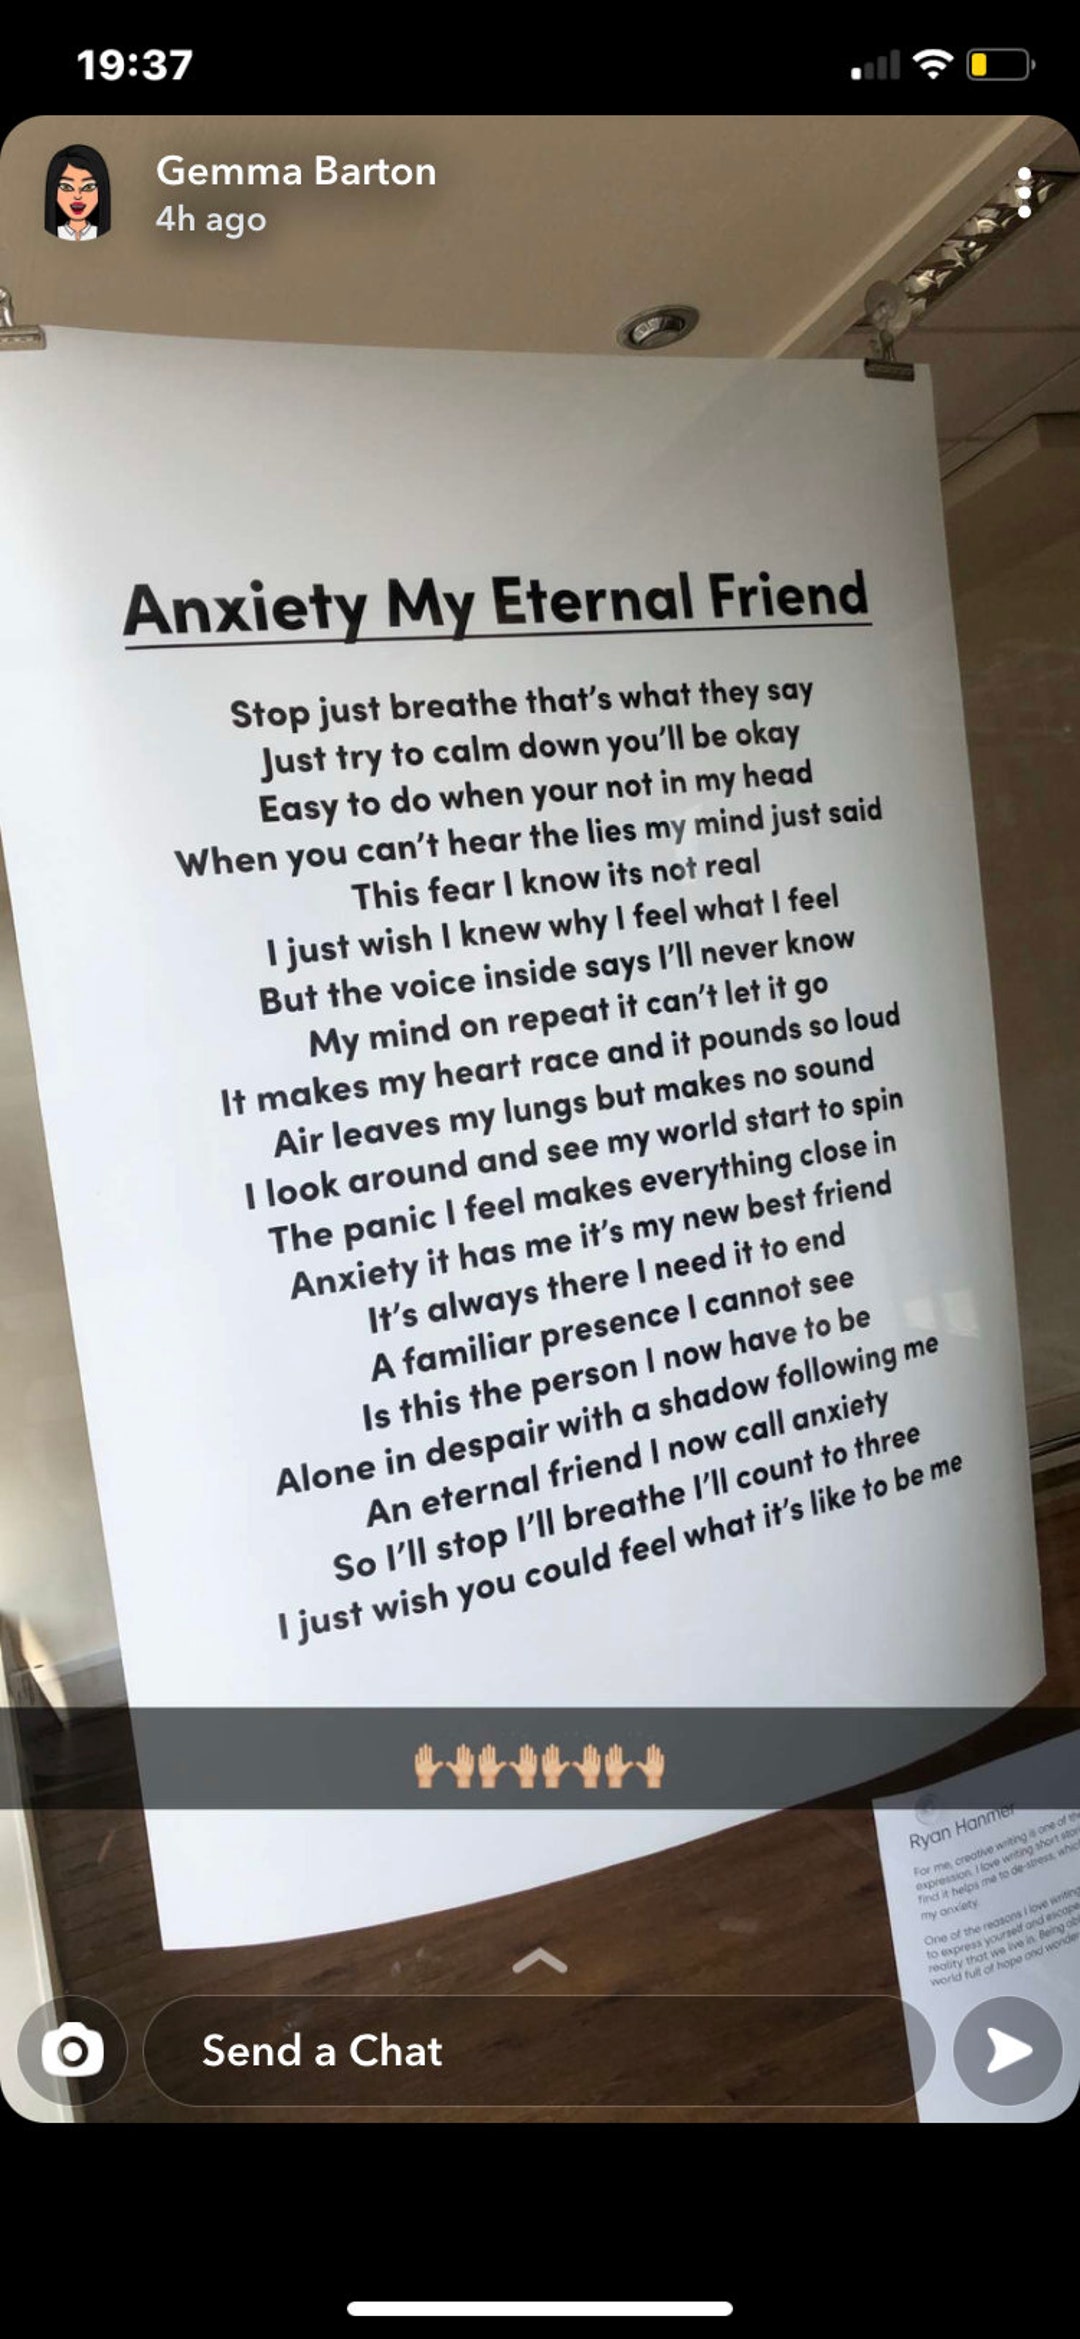 19:37
Gemma Barton
4h ago
Anxiety My Eternal Friend
Stop just breathe that's what they say
Just try to calm down you'll be okay
Easy to do when your not in my head
When you can't hear the lies my mind just said
This fear I know its not real
I just wish I knew why I feel what I feel
But the voice inside says I'll never know
My mind on repeat it can't let it go
It makes my heart race and it pounds so loud
Air leaves my lungs but makes no sound
I look around and see my world start to spin
The panic I feel makes everything close in
Anxiety it has me it's my new best friend
It's always there I need it to end
A familiar presence I cannot see
Is this the person I now have to be
Alone in despair with a shadow following me
An eternal friend I now call anxiety
So I'll stop I'll breathe I'll count to three
I just wish you could feel what it's like to be me
Ryan Hanmer
For me, creative writing is one of
expression. I love writing short
find it helps me to de-stress,
my anxiety.
One of the reasons I love writing
to express yourself and escape
reality that we live in. Being
world full of hope and wonder
Send a Chat